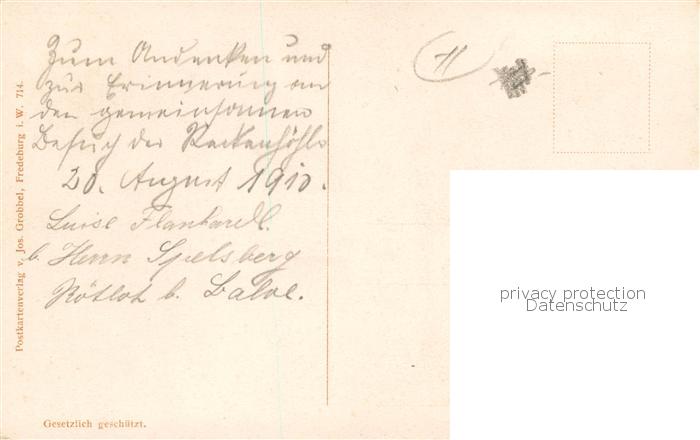 Zum Andenken und
zur Erinnerung an
den gemeinsamen
Besuch der Reckenhöhle
20. August 1910.
Luise
b. Herrn Spelsberg
b. Balve.
Postkartenverlag v. Jos. Grobbel, Fredeburg i. W. 714.
Gesetzlich geschützt.
11
privacy protection
Datenschutz